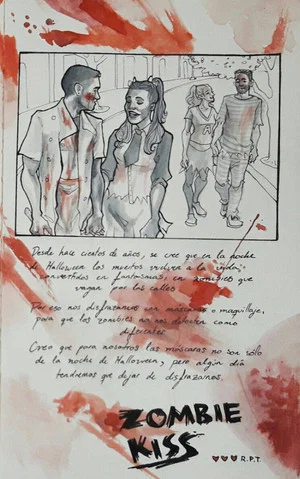 Desde hace cientos de años, se cree que en la noche
de Halloween los muertos vuelven a la vida
convertidos en fantasmas, en zombies que
vagan por las calles
Por eso nos disfrazamos con máscaras o maquillaje,
para que los zombies no nos detecten como
diferentes
Creo que para nosotros las máscaras no son sólo
de la noche de Halloween, pero algún día
tendremos que dejar de disfrazarnos.
ZOMBIE
KISS
R.P.T.